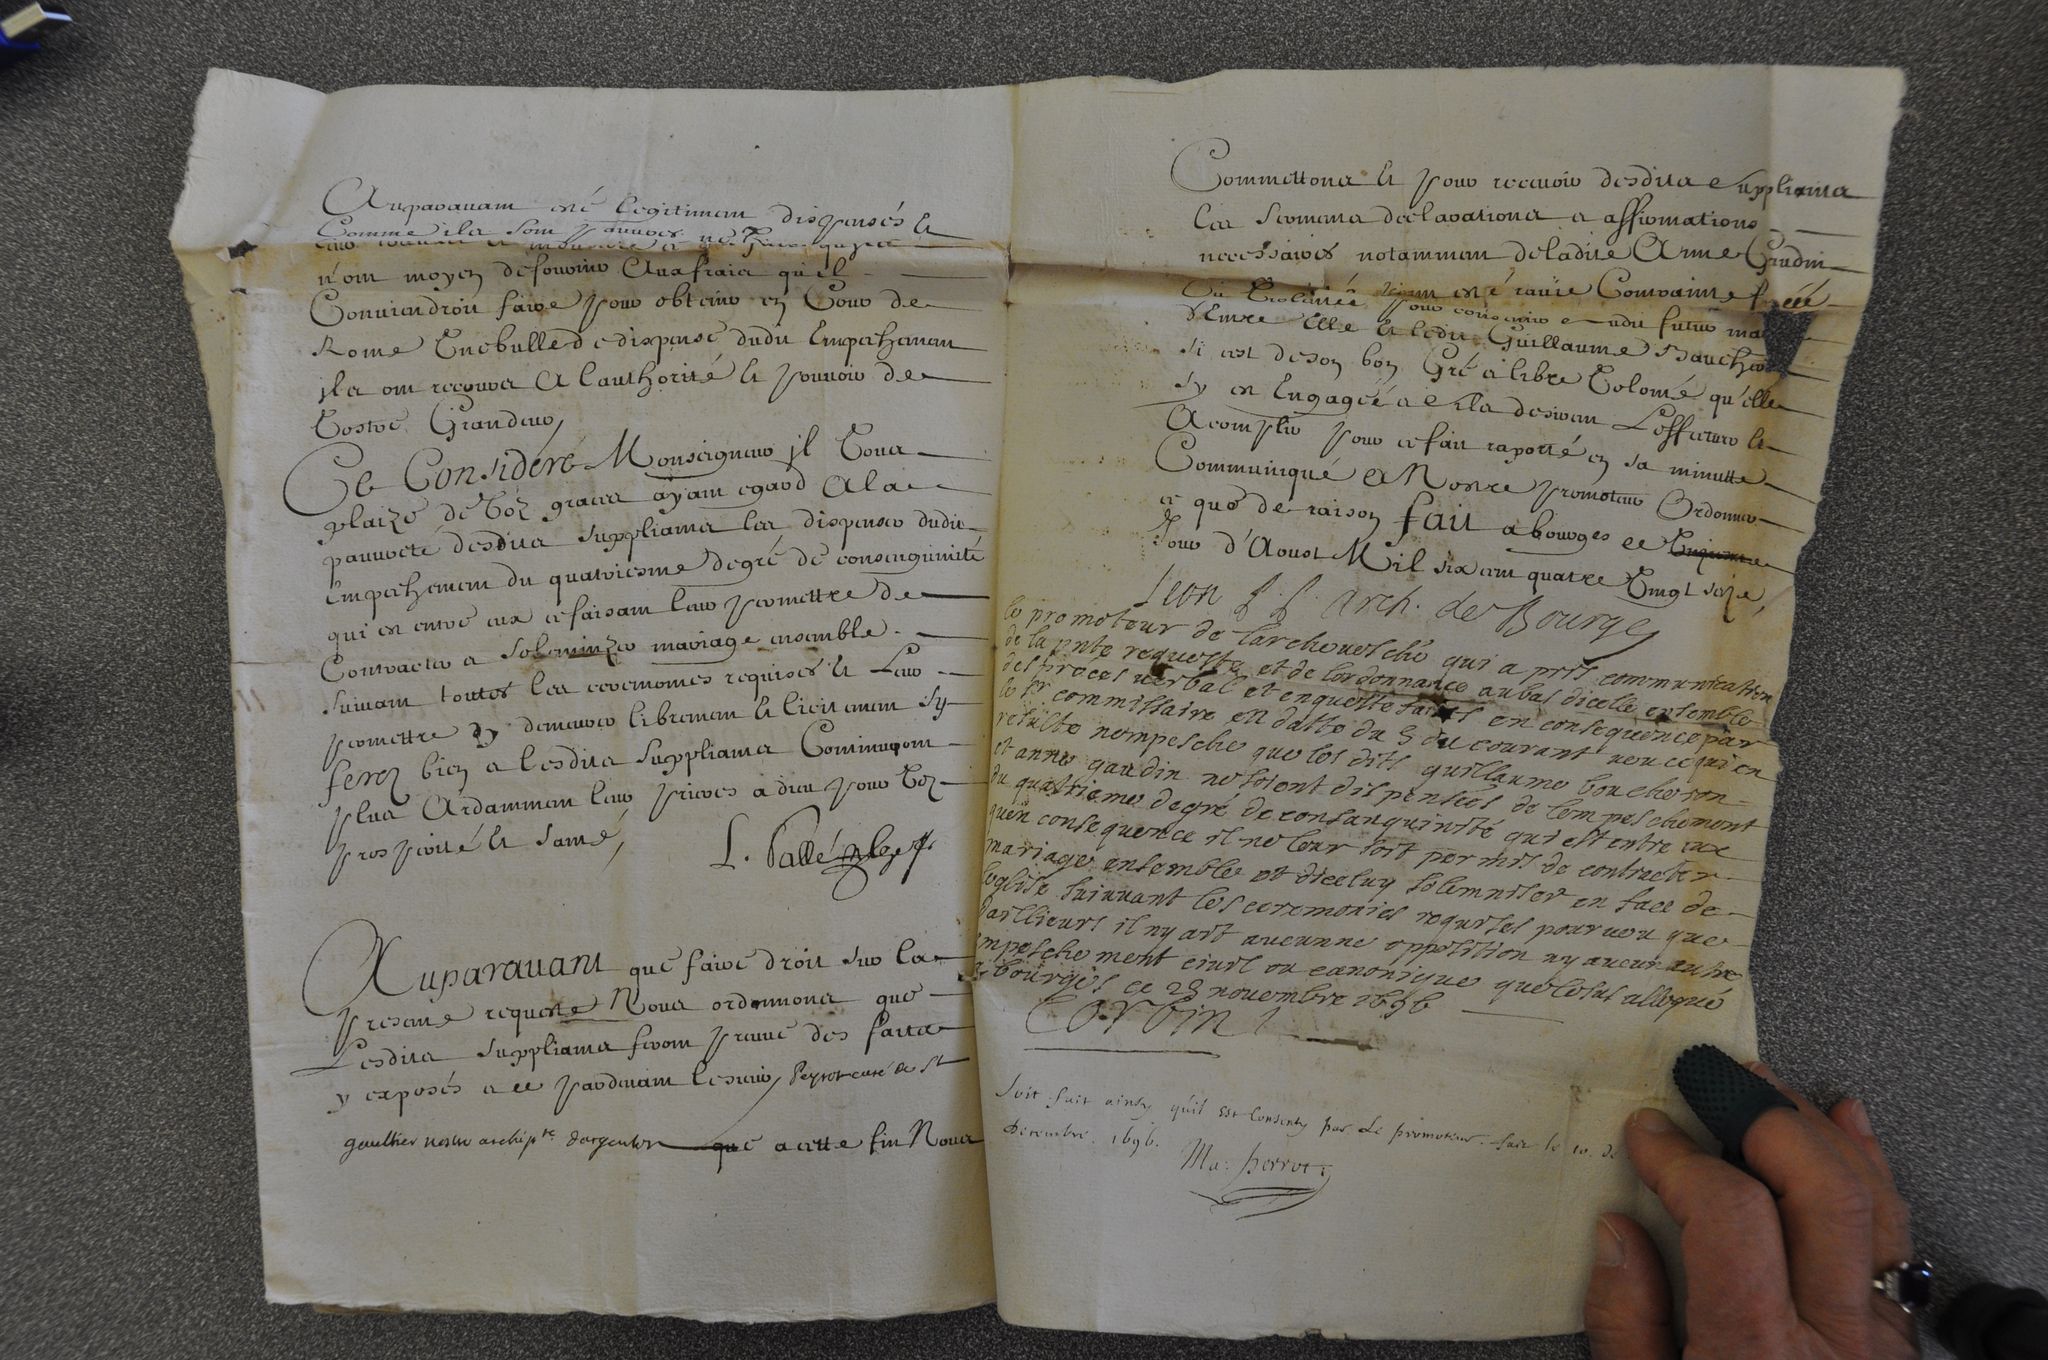 Auparavant esté legitimem<sup>t</sup> dispensés et
Comme ils sont pauvres
n'ont moyen de fournir Aux fraix qu'il
Conviendroit faire pour obtenir en Cour de
Rome Une bulle de dispense dudit Empechement
ils ont recours A l'authorité et pouvoir de
Vostre Grandeur,
Ce Consideré Monseigneur il Vous
plaize de Voz graces ayant egard A la
pauvreté desdits suppliants les dispenser dudit
Empechement du quatriesme degré de consenguinité
qui est entre eux ce faisant leur permettre de
Contracter et solemnizer mariage ensemble
suivant touttes les ceremonies requises et Leur
permettre dy demeurer librement et licitement Sy
ferez bien et lesdits suppliants Continueront
plus Ardamment leurs prieres a dieu pour Voz
prosperité et santé,
Auparavant que faire droit sur la
presente requeste Nous ordonnons que
Lesdits suppliants feront preuve des faits
y exposés et ce pardevant le sieur Peyrot curé de St
gaultier nostre archip<sup>tre</sup> dargenton que a cette fin Nous
Commettons et pour recevoir desdits suppliants
les serments declarations et affirmations
necessaires notamment de ladite Anne Gaudin
d'Entre Elle et ledit Guillaume Baucheron
si c'est de son bon Gré et libre Volonté qu'elle
s'y est Engagée et s'ils desirent L'effectuer et
Acomplir pour ce fait raporté en sa minutte
Communiqué A Nostre promoteur Ordonner
ce que de raison fait a bourges ce
Jour d'Aoust Mil six cent quatre Vingt seize,
Leon P. P. Arch. de Bourges
le promoteur de larchevesché qui a pris communication
de la pnte requeste et de lordonnance au bas dicelle ensemble
des proces verbal et enqueste faits en consequence par
le sr commissaire en datte du 5 du courant veu ce qui en
resulte nempesche que les dits guillaume boucheron
et anne gaudin ne soient dispensés de lempeschement
du quatrieme degré de consanguinité qui est entre eux
quen consequence il ne leur soit permis de contracter
mariage ensemble et diceluy solemniser en face de
leglise suivant les ceremonies requises pourveu que
dallieurs il ny ait aucunne opposition ny aucun autre
empeschement civil ou canonique que celuy allegué
a bourges ce 28 novembre 1696
Corbin
Soit fait ainsy quil est Consenty par Le promoteur. fait le 10. de
Decembre. 1696.
Ma: perrot